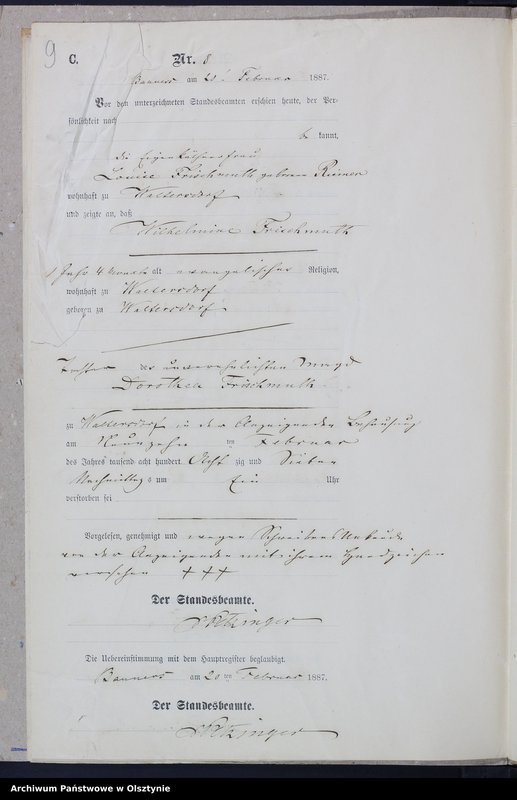 9
C.
Nr. 8
Banners am 20ten Februar 1887.
Vor dem unterzeichneten Standesbeamten erschien heute, der Per-
sönlichkeit nach
be kannt,
die Eigenkäthnerfrau
Louise Frischmuth geborene
wohnhaft zu Waltersdorf
und zeigte an, daß
Wilhelmine Frischmuth
1 Jahr 4 Monate alt evangelischer Religion,
wohnhaft zu Waltersdorf
geboren zu Waltersdorf
Tochter der unverehelichten Magd
Dorothea Frischmuth
zu Waltersdorf in der Anzeigenden Behausung
am Neunzehn ten Februar
des Jahres tausend acht hundert Acht zig und Sieben
Nachmittags um Ein Uhr
verstorben sei
Vorgelesen, genehmigt und wegen Schreibens Unkunde
von der Anzeigenden mit ihrem Handzeichen
versehen +++
Der Standesbeamte.
Die Uebereinstimmung mit dem Hauptregister beglaubigt.
Banners am 20ten Februar 1887.
Der Standesbeamte.
Archiwum Państwowe w Olsztynie